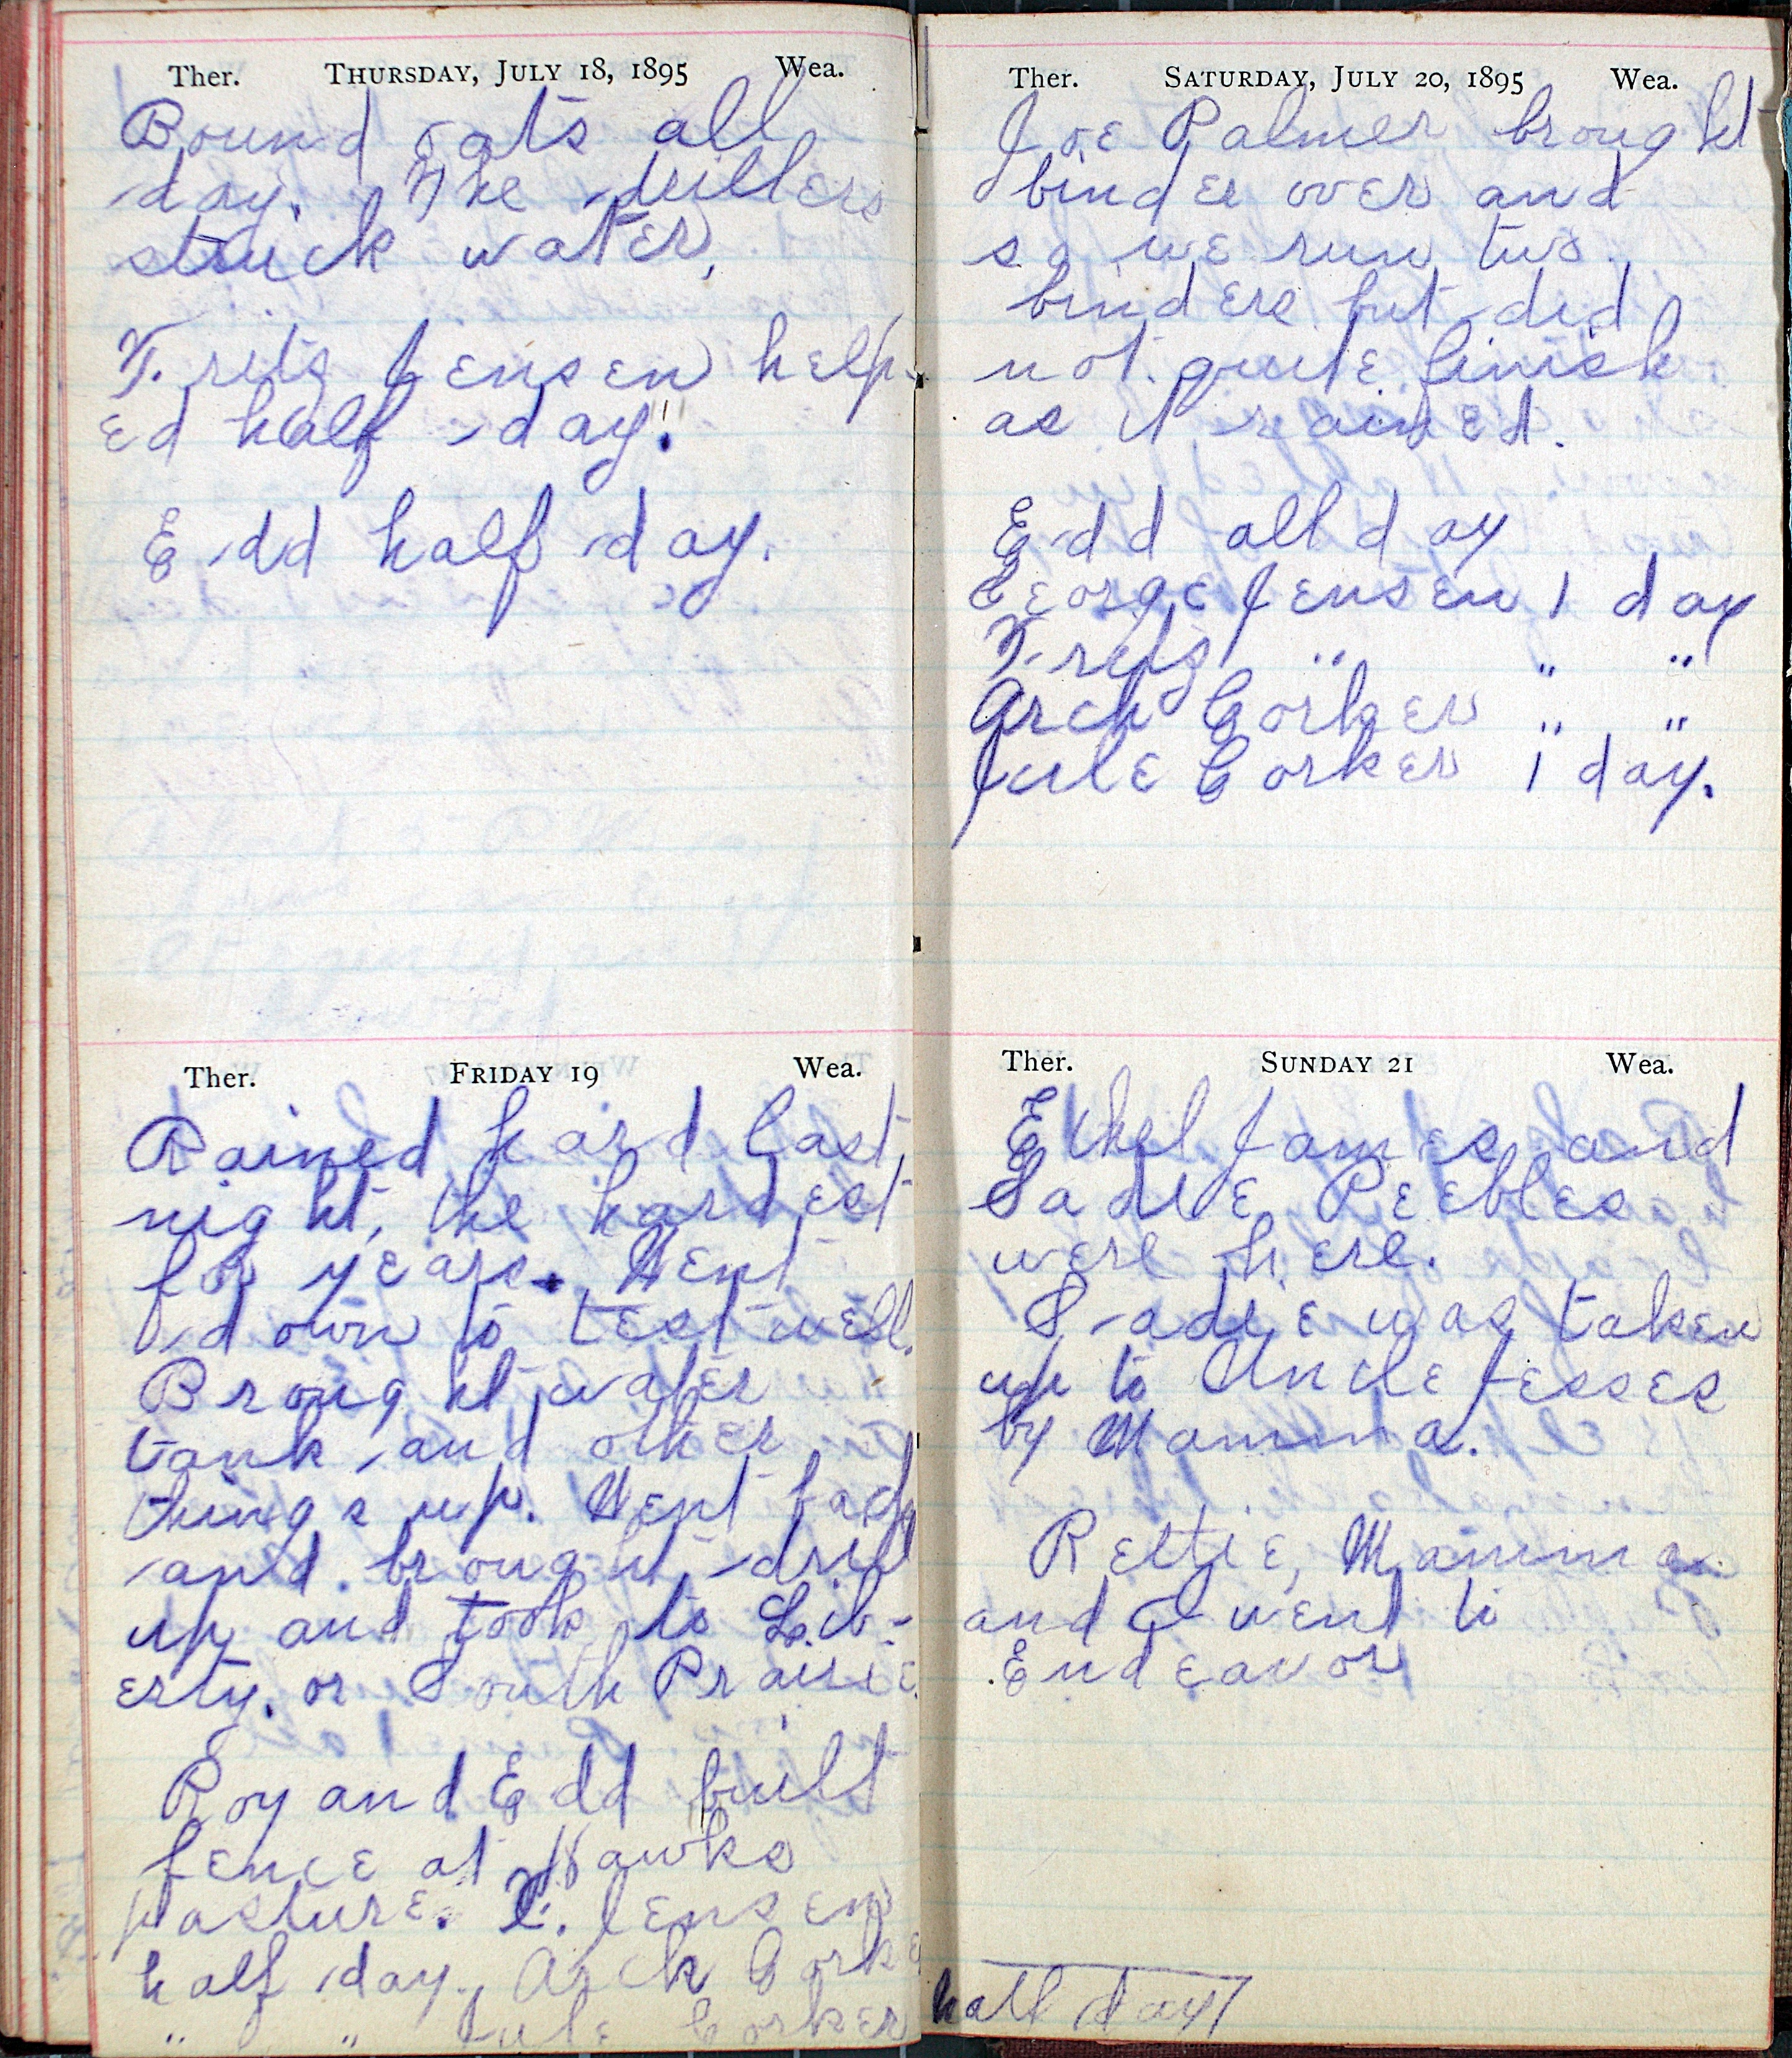 Ther. THURSDAY, JULY 18, 1895 Wea.
Bound oats all
day. The drillers
stuck water,
Frits Jensen help-
ed half day.
Edd half day.
Ther. FRIDAY 19 Wea.
Rained hard last
night, the hardest
for years. Went
down to test well.
Brought water
tank and other
things up. Went back
and brought drill
up and took to Lib-
erty. or South Prairie.
Roy and Edd built
fence at Hawks
pasture. F. Jensen
half day. Arch Corker
" " Jule Corker
half day
Ther. SATURDAY, JULY 20, 1895 Wea.
Joe Palmer brought
binder over and
so we run two
binders but did
not quite finish
as it rained.
Edd all day
George Jensen 1 day
Frits " " "
Arch Corker " "
Jule Corker 1 day.
Ther. SUNDAY 21 Wea.
Ethel James and
Sadie Peebles
were here.
Sadie was taken
up to Uncle Jesses
by Mamma.
Rettie, Mamma
and I went to
Endeavor